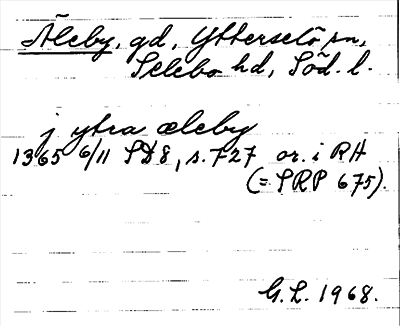 Åleby, gd, Ytterselö sn,
Selebo hd, Söd. l.
j ytra æleby
1365 6/11 SD8, s. 727 or. i RH
(= SRP 675).
G. L. 1968.